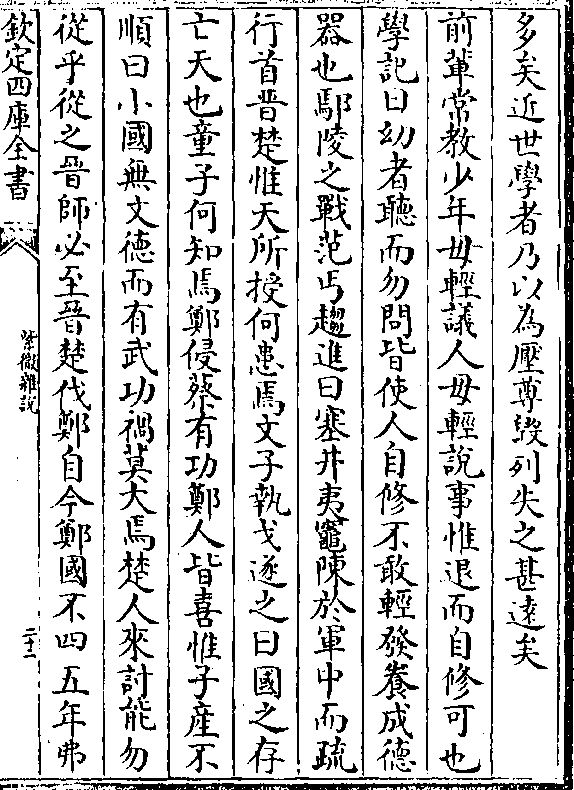 多矣近世學者乃以為壓尊毀列失之甚遠矣
前輩常教少年毋輕議人毋輕說事惟退而自修可也
學記曰幼者聽而勿問皆使人自修不敢輕發養成德
器也鄢陵之戰范匄趨進曰塞井夷竈陳於軍中而疏
行首晉楚惟天所授何患焉文子執戈逐之曰國之存
亡天也童子何知焉鄭侵蔡有功鄭人皆喜惟子產不
順曰小國無文德而有武功禍莫大焉楚人來討能勿
從乎從之晉師必至晉楚伐鄭自今鄭國不四五年弗
欽定四庫全書
紫微雜說
二十二